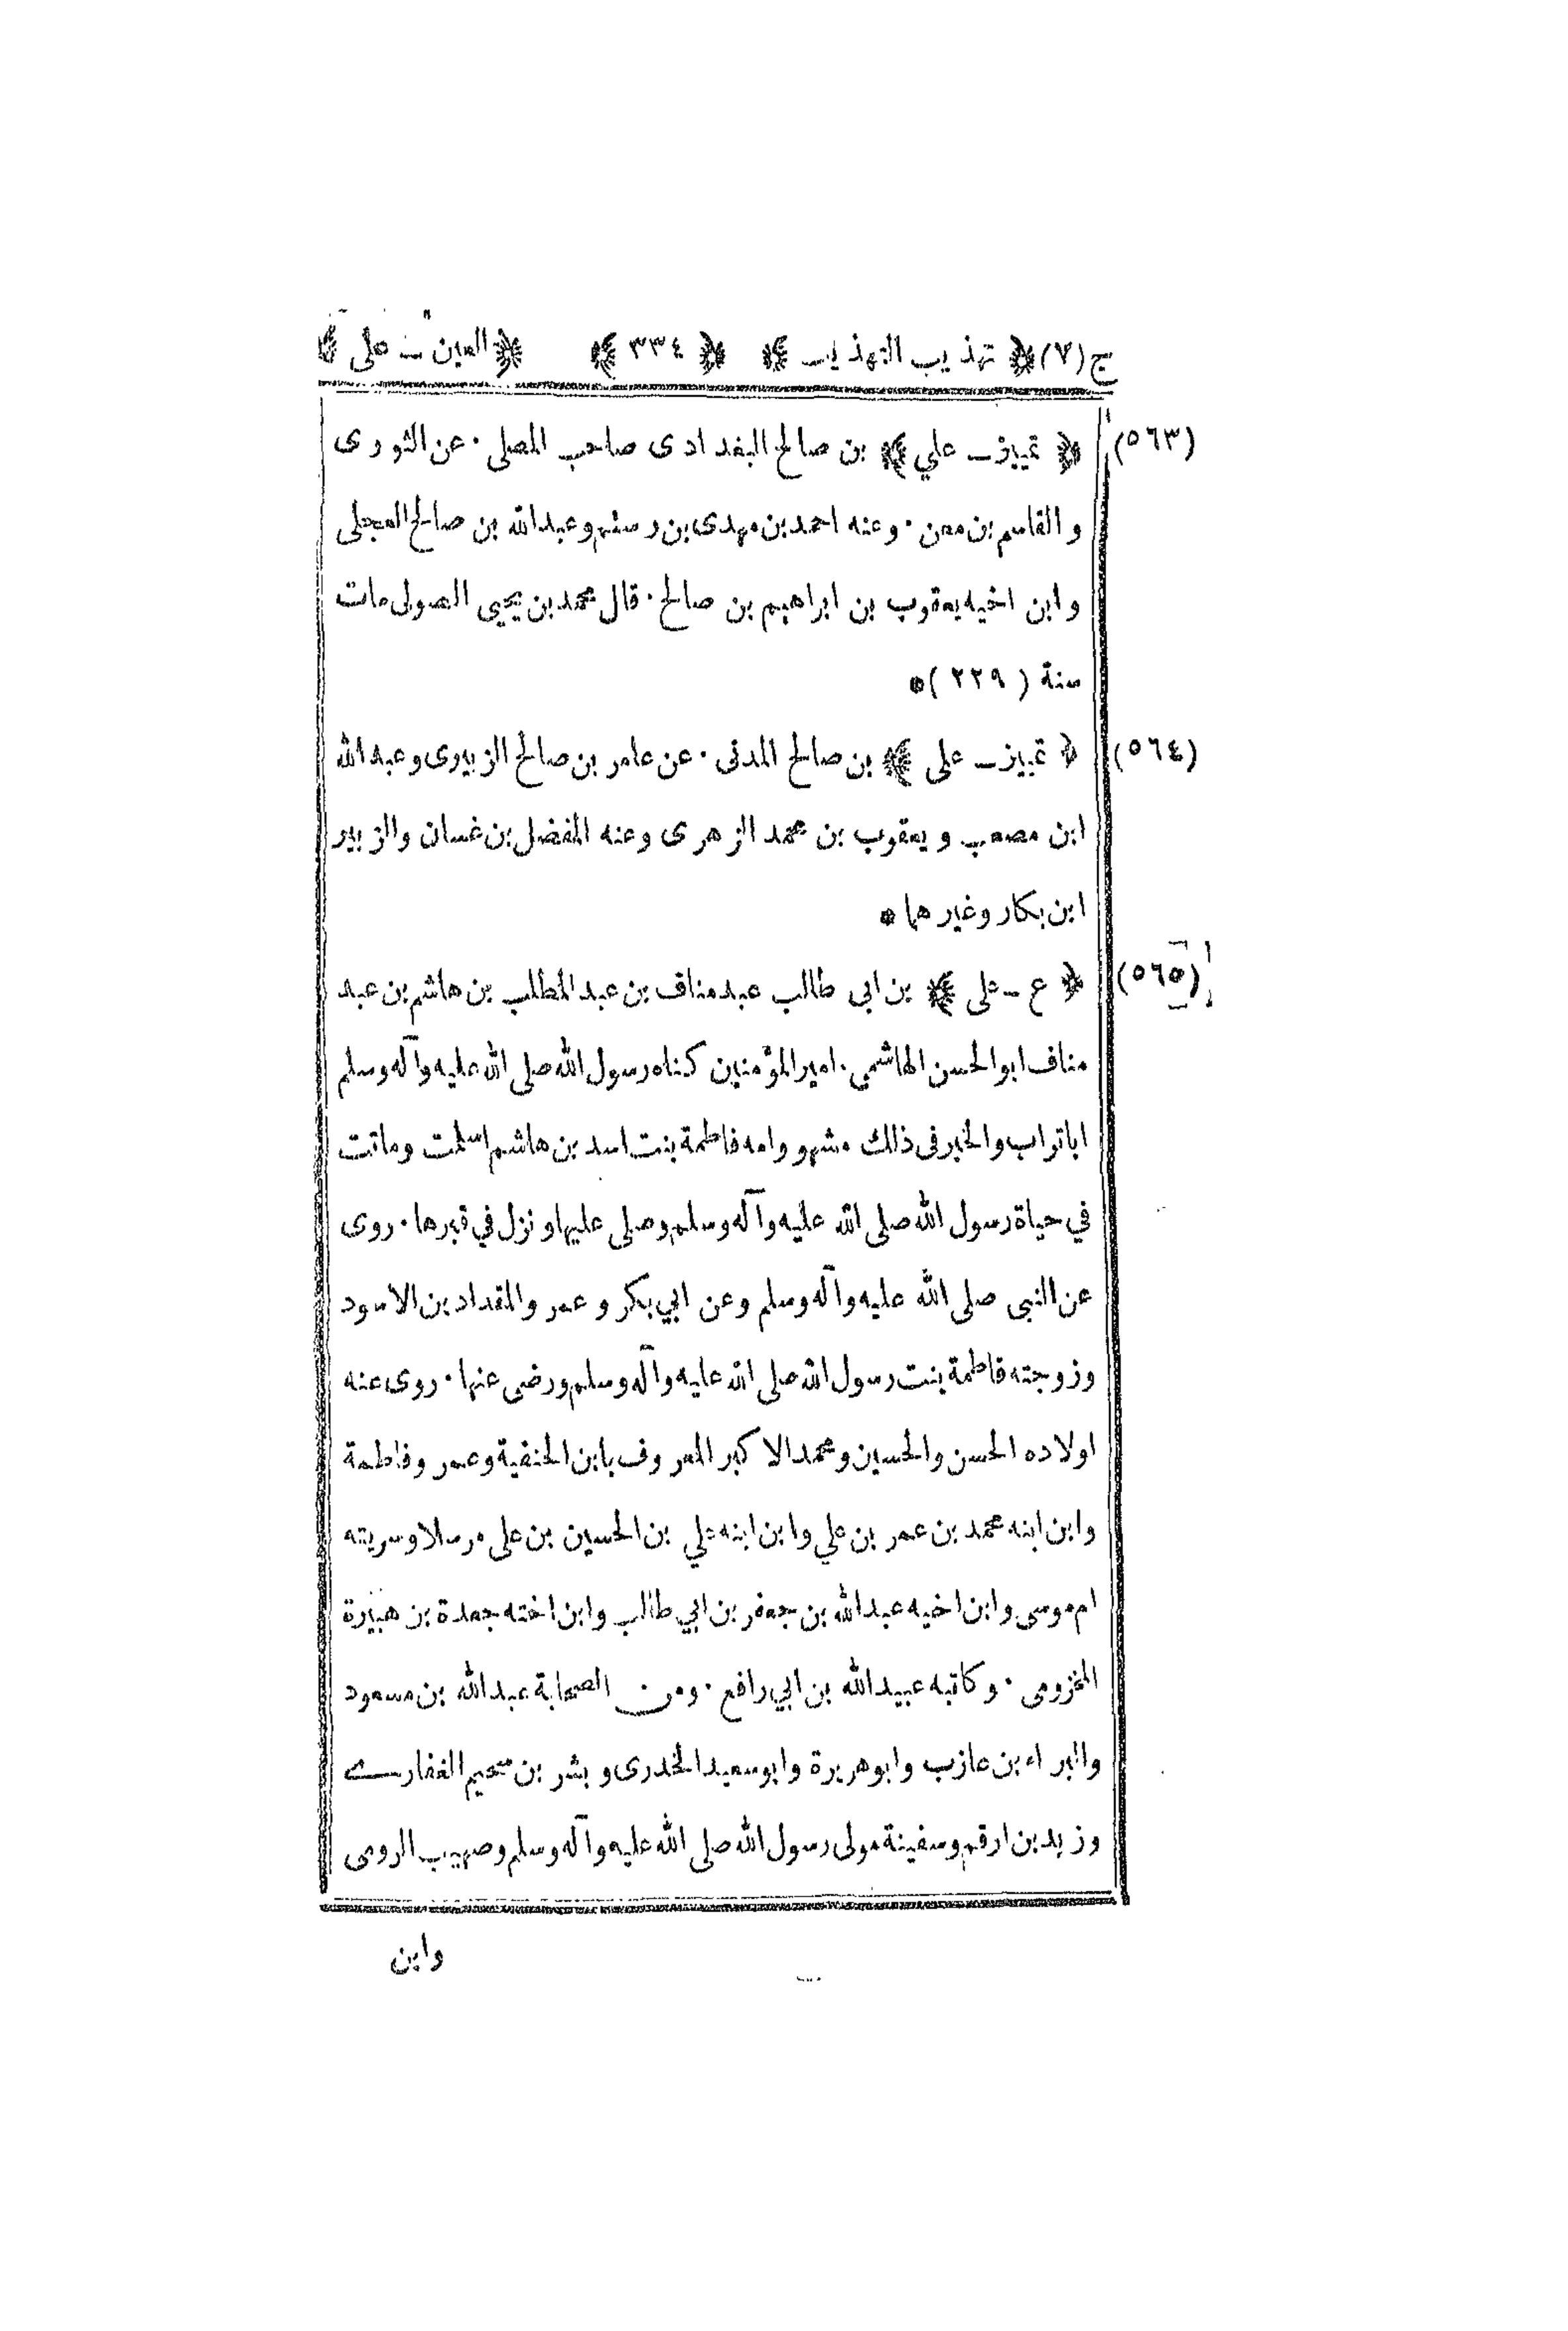 ج(٧) ﴿ تهذيب التهذيب ﴾ ﴿ ٣٣٤ ﴾ ﴿ العين - على ﴾
(٥٦٣) ﴿ تمييز - علي ﴾ بن صالح البغدادى صاحب المصلى . عن الثورى
والقاسم بن معن . وعنه احمد بن مهدى بن رستم وعبد الله بن صالح العجلى
وابن اخيه يعقوب بن ابراهيم بن صالح . قال محمد بن يحيى الصولى مات
سنة ( ٢٢٩ ) *
(٥٦٤) ﴿ تمييز - على ﴾ بن صالح المدنى . عن عامر بن صالح الزبيرى وعبد الله
ابن مصعب ويعقوب بن محمد الزهرى وعنه المفضل بن غسان والزبير
ابن بكار وغيرهما *
(٥٦٥) ﴿ ع - على ﴾ بن ابى طالب عبد مناف بن عبد المطلب بن هاشم بن عبد
مناف ابو الحسن الهاشمي . امير المؤمنين كناه رسول الله صلى الله عليه وآله وسلم
ابا تراب والخبر فى ذلك مشهو وامه فاطمة بنت اسد بن هاشم اسلمت وماتت
في حياة رسول الله صلى الله عليه وآله وسلم وصلى عليها ونزل في قبرها . روى
عن النبى صلى الله عليه وآله وسلم وعن ابي بكر وعمر والمقداد بن الاسود
وزوجته فاطمة بنت رسول الله صلى الله عليه وآله وسلم ورضى عنها . روى عنه
اولاده الحسن والحسين ومحمد الاكبر المعروف بابن الحنفية وعمر وفاطمة
وابن ابنه محمد بن عمر بن علي وابن ابنه علي بن الحسين بن على مرسلا وسريته
ام موسى وابن اخيه عبد الله بن جعفر بن ابي طالب وابن اخته جعدة بن هبيرة
المخزومى . وكاتبه عبيد الله بن ابي رافع . ومن الصحابة عبد الله بن مسعود
والبراء بن عازب وابو هريرة وابو سعيد الخدرى وبشر بن سحيم الغفارى
وزيد بن ارقم وسفينة مولى رسول الله صلى الله عليه وآله وسلم وصهيب الرومى
وابن